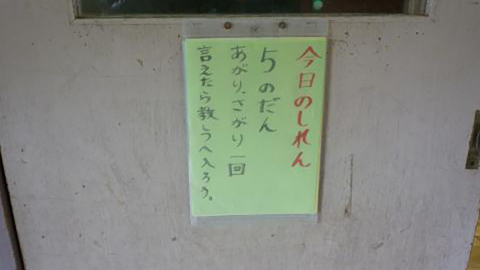 今日のしれん
5のだん
あがり、さがり一回
言えたら教しつへ入ろう。